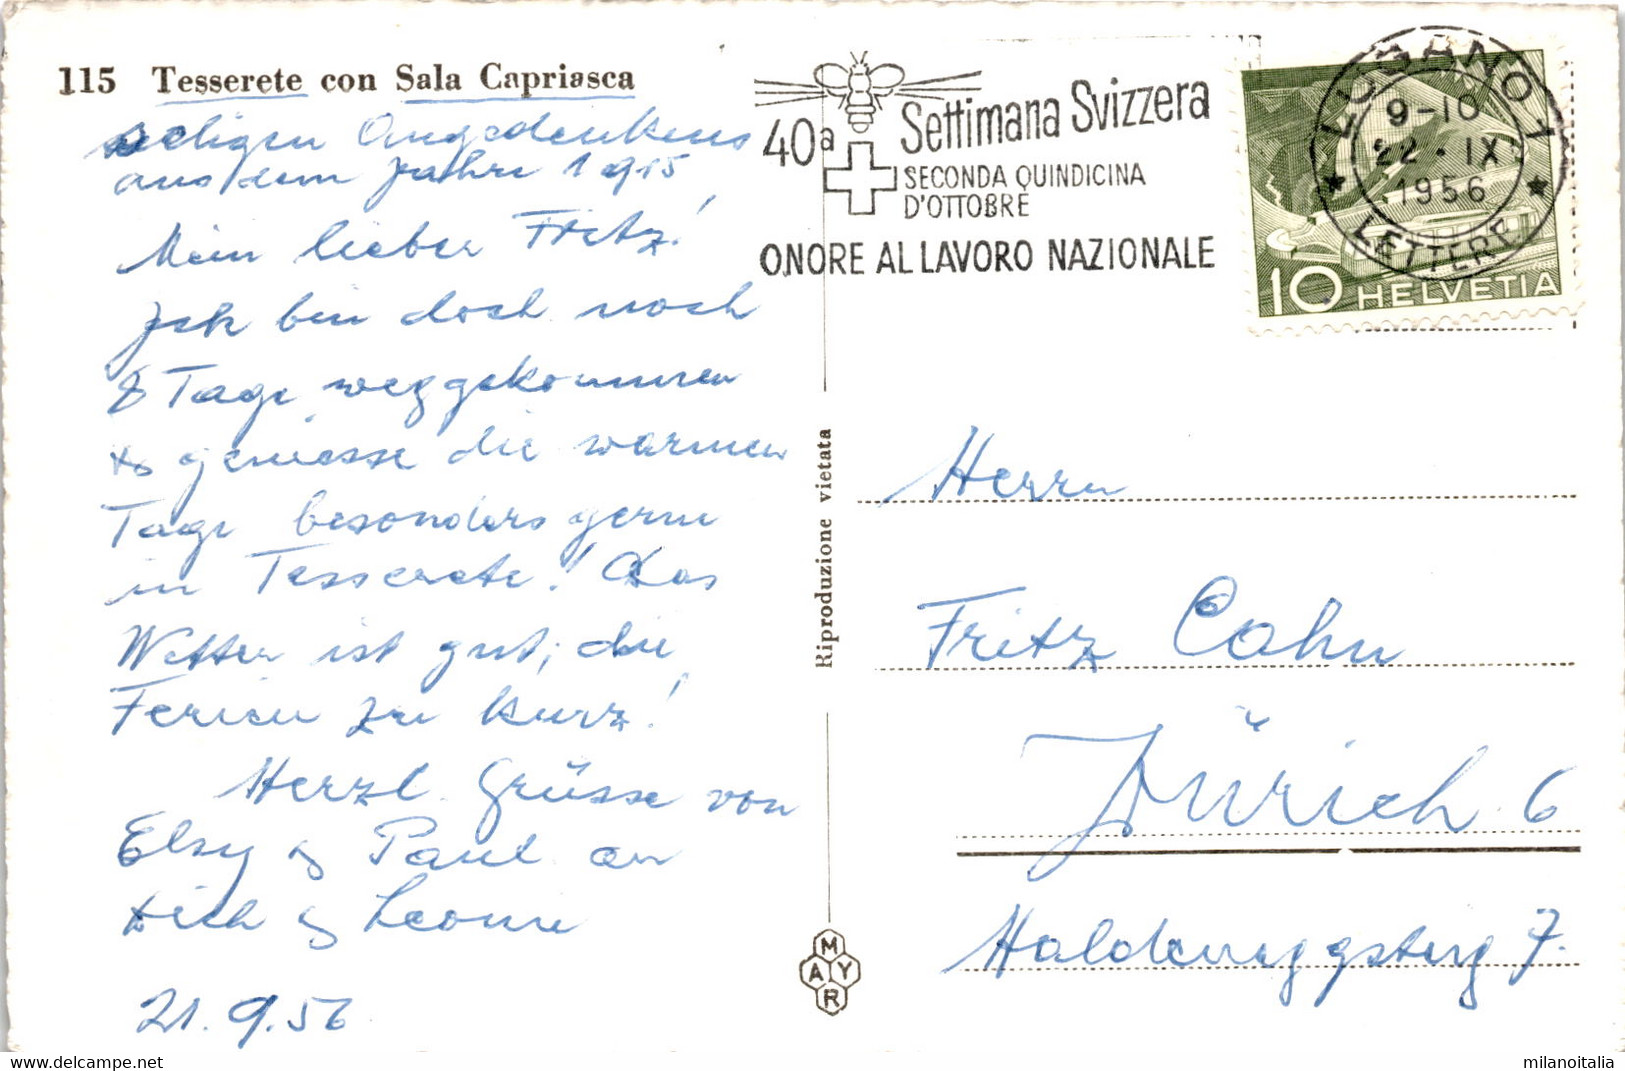 115 Tesserete con Sala Capriasca
seligen Angedenkens
aus dem Jahre 1915
Mein lieber Fritz!
Ich bin doch noch
8 Tage weggekommen
& geniesse die warmen
Tage besonders gern
in Tesserete! Das
Wetter ist gut, die
Ferien zu kurz!
Herzl. Grüsse von
Elsy & Paul an
Dich & Leonie
21.9.56
40a Settimana Svizzera
SECONDA QUINDICINA
D'OTTOBRE
ONORE AL LAVORO NAZIONALE
LUGANO 1
9-10
22·IX
1956
LETTERE
10 HELVETIA
Riproduzione vietata
Herrn
Fritz Cahn
Zürich 6
Haldeneggsteig 7.
MAYR
delcampe.net
milanoitalia